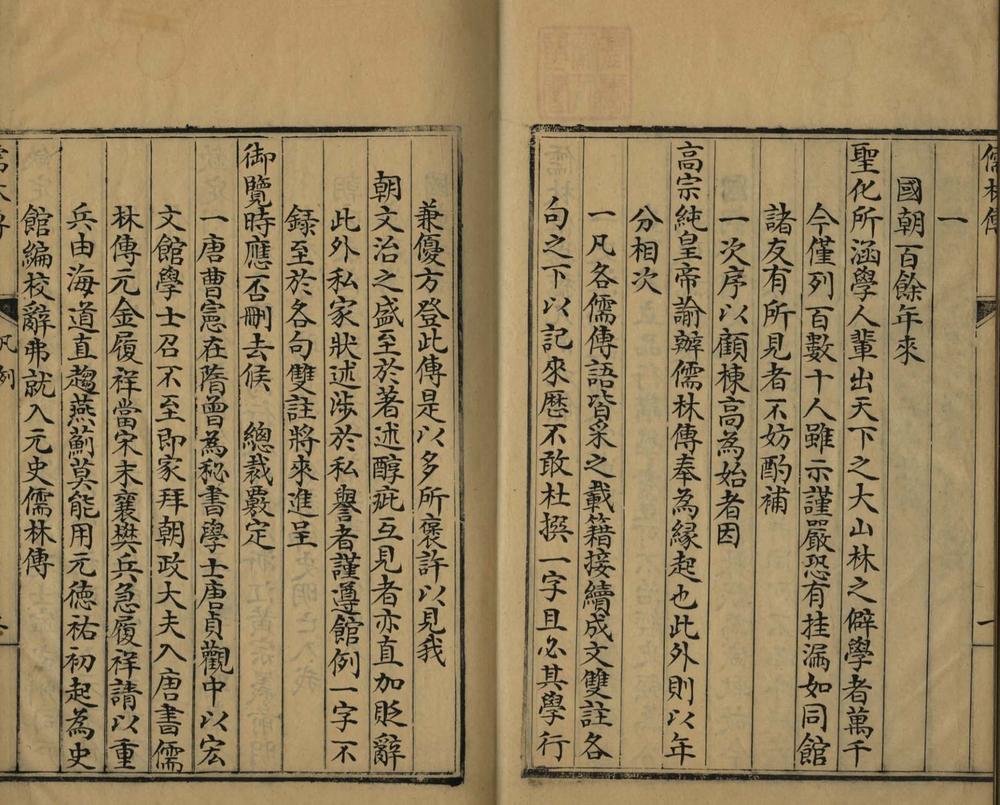 儒林傳
一
國朝百餘年來
聖化所涵學人輩出天下之大山林之僻學者萬千
今僅列百數十人雖示謹嚴恐有挂漏如同館
諸友有所見者不妨酌補
一次序以顧棟高為始者因
高宗純皇帝諭辦儒林傳奉為緣起也此外則以年
分相次
一凡各儒傳語皆采之載籍接續成文雙註各
句之下以記來歷不敢杜撰一字且必其學行
兼優方登此傳是以多所褒許以見我
朝文治之盛至於著述醇疵互見者亦直加貶辭
此外私家狀述涉於私譽者謹遵館例一字不
錄至於各句雙註將來進呈
御覽時應否刪去候 總裁覈定
一唐曹憲在隋曾為秘書學士唐貞觀中以宏
文館學士召不至即家拜朝政大夫入唐書儒
林傳元金履祥當宋末襄樊兵急履祥請以重
兵由海道直趨燕薊莫能用元德祐初起為史
館編校辭弗就入元史儒林傳
凡例